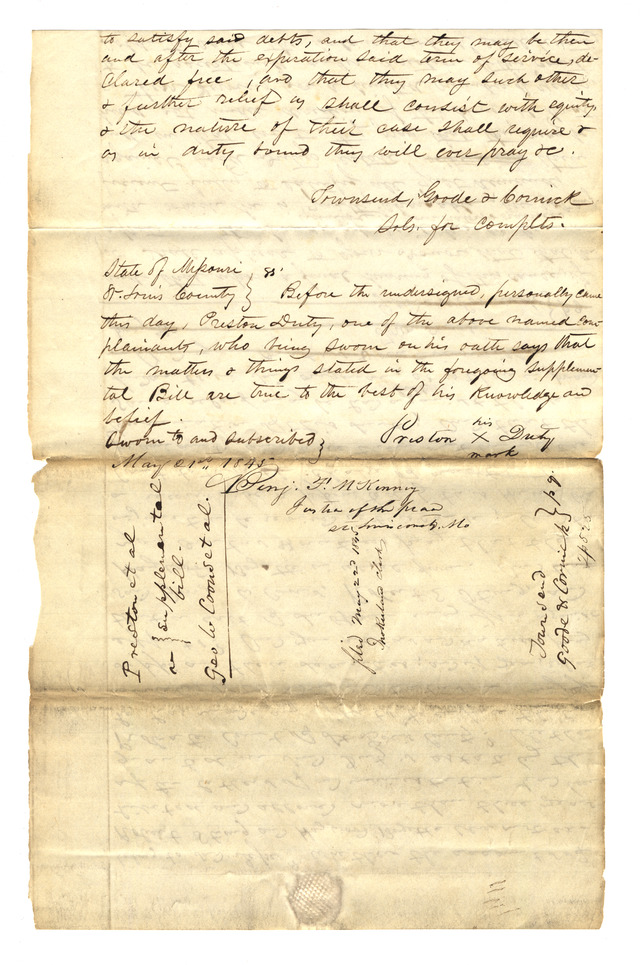 to satisfy said debts, and that they may be then
and after the expiration said term of service, de-
clared free, and that they may such other
& further relief as shall consist with equity,
& the nature of their case shall require &
as in duty bound they will ever pray &c.
Townsend, Goode & Cornick
Sols. for Complts.
State of Missouri } ss'
St. Louis County } Before the undersigned, personally came
this day, Preston Duty, one of the above named com-
plainants, who being sworn on his oath says that
the matters & things stated in the foregoing supplemen-
tal Bill are true to the best of his Knowledge and
belief.
Sworn to and subscribed } Preston his X mark Duty
May 21st. 1845
Benj. F. McKenney
Justice of the peace
St Louis county, Mo
Preston et al
vs } supplemental
bill.
Geo W Coons et al.
filed May 22d 1845
Clerk
Townsend
Goode & Cornick } pq.